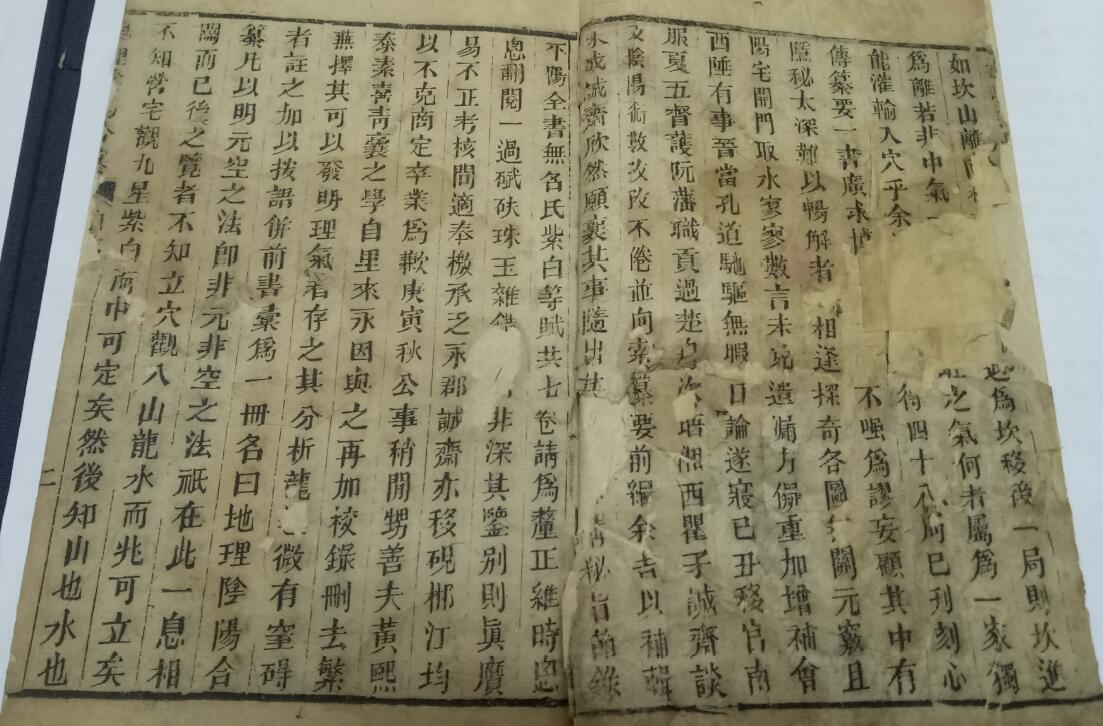 如坎山離
為坎移後一局則坎進
為離若非中氣
之氣何者屬為一家獨
能灌輸入穴乎余
得四十八局已刊刻心
傳纂要一書廣求
不嗤為謬妄顧其中有
隱秘太深難以暢解者
相逢探奇各圖
關元竅且
陽宅開門取水寥寥數言未
遺漏方儗重加增補會
酉陲有事晉當孔道馳驅無暇
日論遂寢已丑移官南
服夏五督護阮藩職貢過楚
次晤湘西瞿子誠齋談
及陰陽術數孜孜不倦並向索纂要前編余告以補輯
未成誠齋欣然願襄其事隨出其
秘旨節錄
平陽全書無名氏紫白等賦共七卷請為釐正維時悤
悤翻閱一過碔砆珠玉雜
非深其鑒别則眞贋
易不正考核間適奉檄承乏永郡誠齋亦移硯郴江均
以不克商定卒業為歉庚寅秋公事稍閒甥善夫黃熙
泰素喜靑囊之學自里來永因與之再加校錄刪去繁
蕪擇其可以發明理氣者存之其分析龍
微有窒碍
者註之加以援語併前書彙為一冊名曰地理陰陽合
纂凡以明元空之法卽非元非空之法祇在此一息相
關而已後之覽者不知立穴觀八山龍水而兆可立矣
不知營宅觀九星紫白
中可定矣然後知山也水也
二